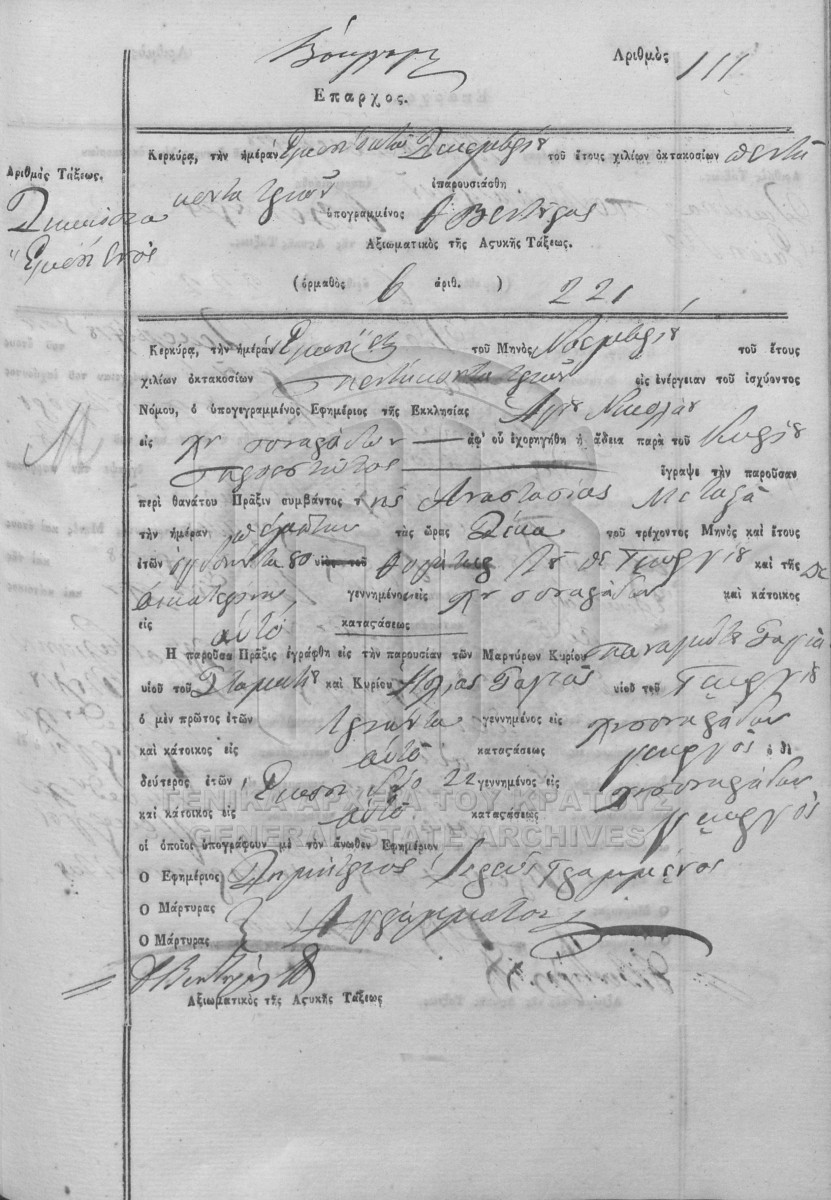 Αριθμὸς 111
Επαρχος.
Κερκύρα, τὴν ἡμέραν Δεκεμβρίου τοῦ ἔτους χιλίων ὀκτακοσίων πεντή
κοντα τριῶν ἐπαρουσιάσθη
Αριθμὸς Τάξεως.
Διακόσια
Εἴκοσι ἑνός
ὑπογραμμένος Βεντύρας
Αξιωματικὸς τῆς Αςυκῆς Τάξεως.
(ὁρμαθὸς 6 ἀριθ. ) 221
Κερκύρα, τὴν ἡμέραν τοῦ Μηνὸς Νοεμβρίου τοῦ ἔτους
χιλίων ὀκτακοσίων πεντήκοντα τριῶν εἰς ἐνέργειαν τοῦ ἰσχύοντος
Νόμου, ὁ ὑπογεγραμμένος Εφημέριος τῆς Εκκλησίας Αγίου Νικολάου
εἰς χν σιναράδων ἀφ' οὗ ἐχορηγήθη ἡ ἄδεια παρὰ τοῦ Κυρίου
Προεστῶτος ἔγραψε τὴν παροῦσαν
περὶ θανάτου Πρᾶξιν συμβάντος τῆς Αναστασίας Μεταξᾶ
τὴν ἡμέραν τὰς ὥρας Δέκα τοῦ τρέχοντος Μηνὸς καὶ ἔτους
ἐτῶν ὀγδοήντα 80 υἱὸς τοῦ θυγάτηρ τοῦ Γεωργίου καὶ τῆς
Αἰκατερίνης γεννημένος εἰς χν σιναράδων καὶ κάτοικος
εἰς αὐτό καταςάσεως
Η παροῦσα Πρᾶξις ἐγράφθη εἰς τὴν παρουσίαν τῶν Μαρτύρων Κυρίου Παναγιώτη
υἱοῦ τοῦ Σταματίου καὶ Κυρίου Ηλίας υἱοῦ τοῦ Γεωργίου
ὁ μὲν πρῶτος ἐτῶν τριάντα γεννημένος εἰς χν σιναράδων
καὶ κάτοικος εἰς αὐτό καταςάσεως γεωργός ὁ δὲ
δεύτερος ἐτῶν Εἴκοσι δύο 22 γεννημένος εἰς χν σιναράδων
καὶ κάτοικος εἰς αὐτό καταςάσεως γεωργός
οἱ ὁποῖοι ὑπογράφουν μὲ τὸν ἄνωθεν Εφημέριον
Ο Εφημέριος Δημήτριος Ιερεύς Γραμμένος
Ο Μάρτυρας Αγράμματοι
Ο Μάρτυρας
Βεντύρας
Αξιωματικὸς τῆς Αςυκῆς Τάξεως
ΓΕΝΙΚΑ ΑΡΧΕΙΑ ΤΟΥ ΚΡΑΤΟΥΣ
GENERAL STATE ARCHIVES